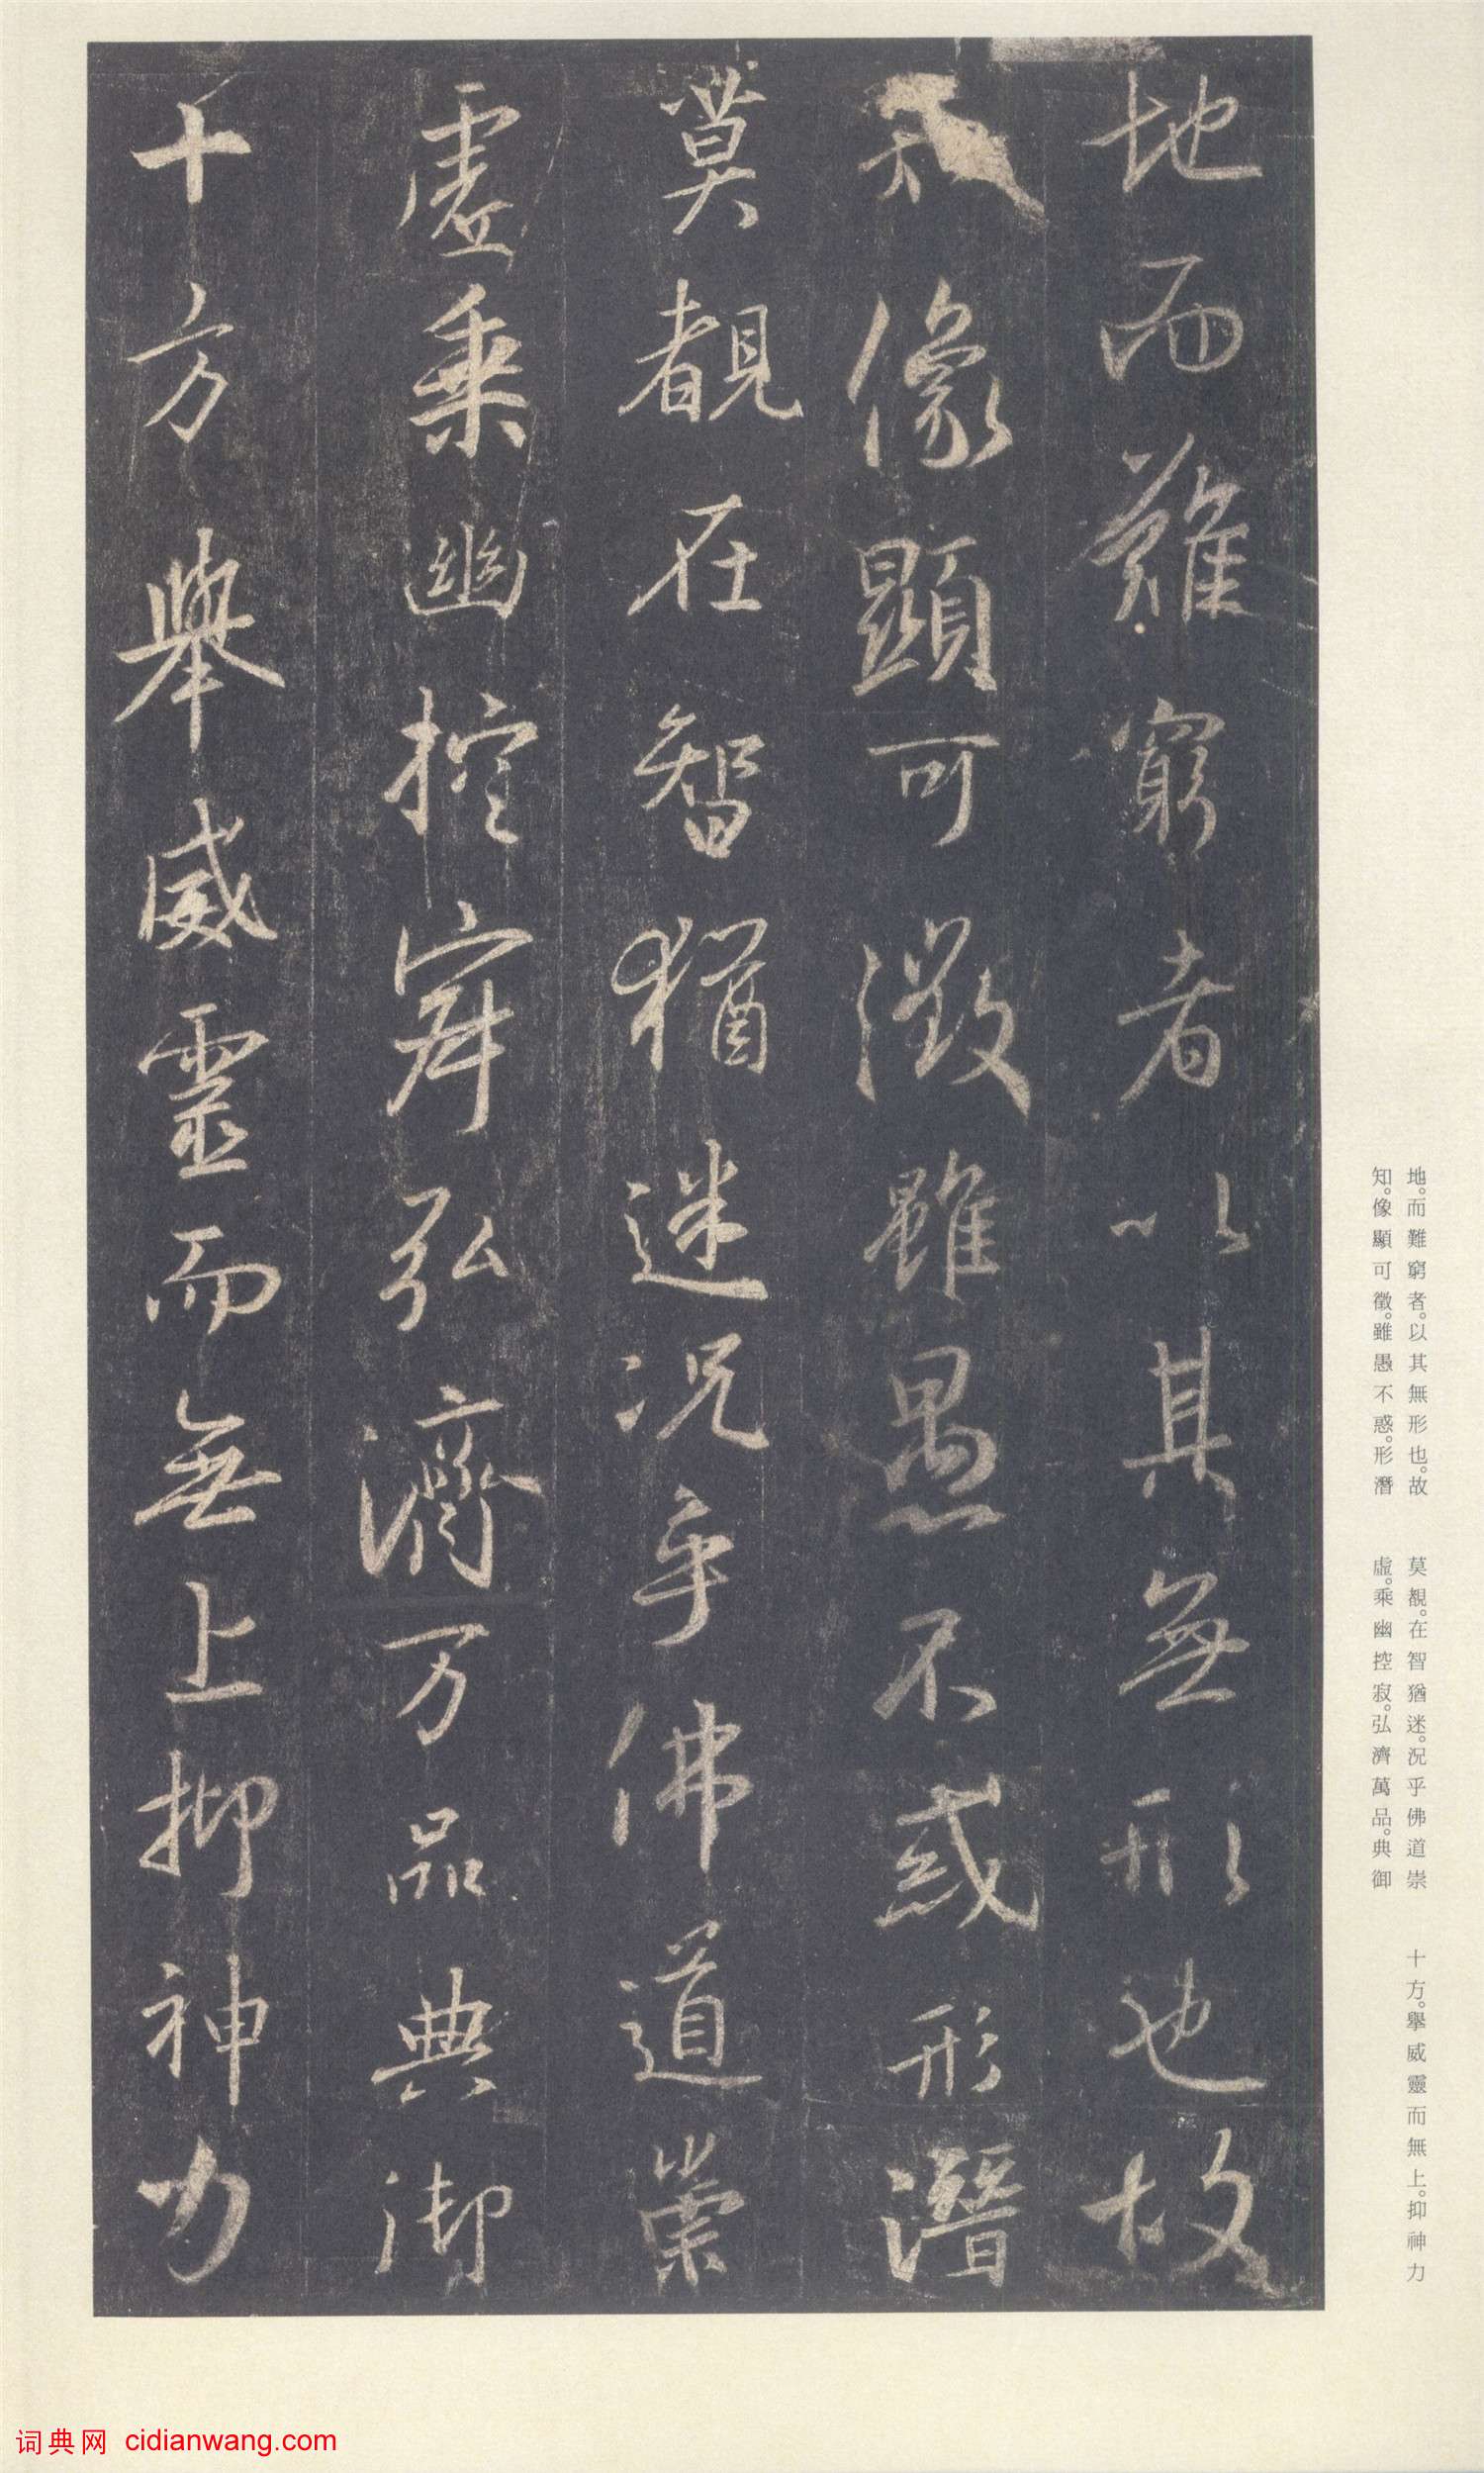 地而難窮者以其無形也故
知像顯可徵雖愚不惑形潛
莫覩在智猶迷況乎佛道崇
虛乘幽控寂弘濟万品典御
十方舉威靈而無上抑神力
地。而難窮者。以其無形也。故 莫覩。在智猶迷。況乎佛道崇 十方。舉威靈而無上。抑神力
知。像顯可徵。雖愚不惑。形潛 虛。乘幽控寂。弘濟萬品。典御
词典网 cidianwang.com